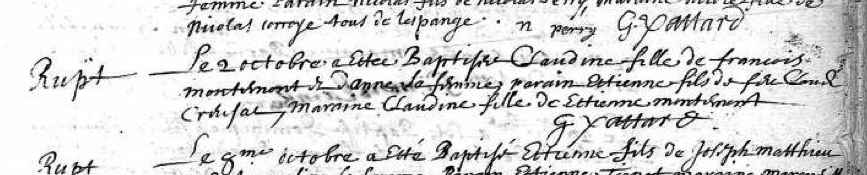 femme parain Nicolas fils de Nicolas
Nicolas corroye tous de lespange . n perry G. Xattard
Rupt Le 2 octobre a Ettee Baptisée Claudine fille de francois
montemont & danne sa femme, parain Ettienne fils de feu Claude
Creusat, maraine Claudine fille de Ettienne montemont
G Xattard
Rupt Le 9me octobre a Etté Baptisé Ettienne fils de Joseph matthieu